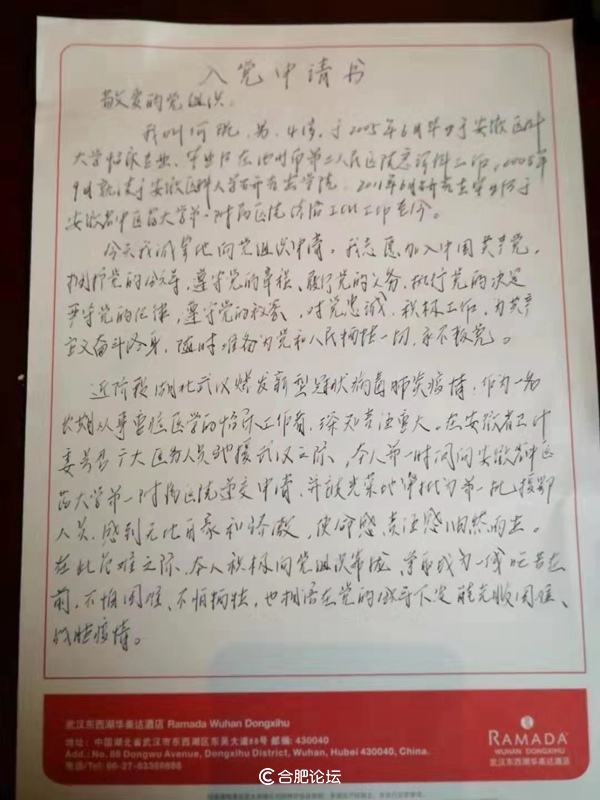 入党申请书
敬爱的党组织:
我叫何 男, 岁, 于2005年6月毕业于安徽医科
大学临床专业, 毕业后在池州市第二人民医院急诊科工作, 2008年
9月就读于安徽医科大学研究生学院, 2011年6月研究生毕业后于
安徽省中医药大学第一附属医院 ICU工作至今。
今天我诚挚地向党组织申请, 我志愿加入中国共产党,
拥护党的纲领, 遵守党的章程、履行党的义务、执行党的决定
严守党的纪律, 遵守党的秘密, 对党忠诚, 积极工作, 为共产
主义奋斗终身, 随时准备为党和人民牺牲一切, 永不叛党。
近阶段湖北武汉爆发新型冠状病毒肺炎疫情, 作为一名
长期从事重症医学的临床工作者, 深知责任重大。在安徽省卫计
委号召广大医务人员驰援武汉之际, 本人第一时间向安徽省中医
药大学第一附属医院递交申请, 并被光荣地审批为第一批援鄂
人员, 感到无比自豪和骄傲, 使命感责任感油然而生。
在此危难之际, 本人积极向党组织靠拢, 争取成为一线 吃苦在
前, 不怕困难、不怕牺牲, 也相信在党的领导下定能克服困难、
战胜疫情。
武汉东西湖华美达酒店 Ramada Wuhan Dongxihu
地址: 中国湖北省武汉市东西湖区东吴大道88号 邮编: 430040
Add.: No. 88 Dongwu Avenue, Dongxihu District, Wuhan, Hubei 430040, China.
电话/Tel: 86-27-83388888
RAMADA
WUHAN DONGXIHU
武汉东西湖华美达酒店
合肥论坛